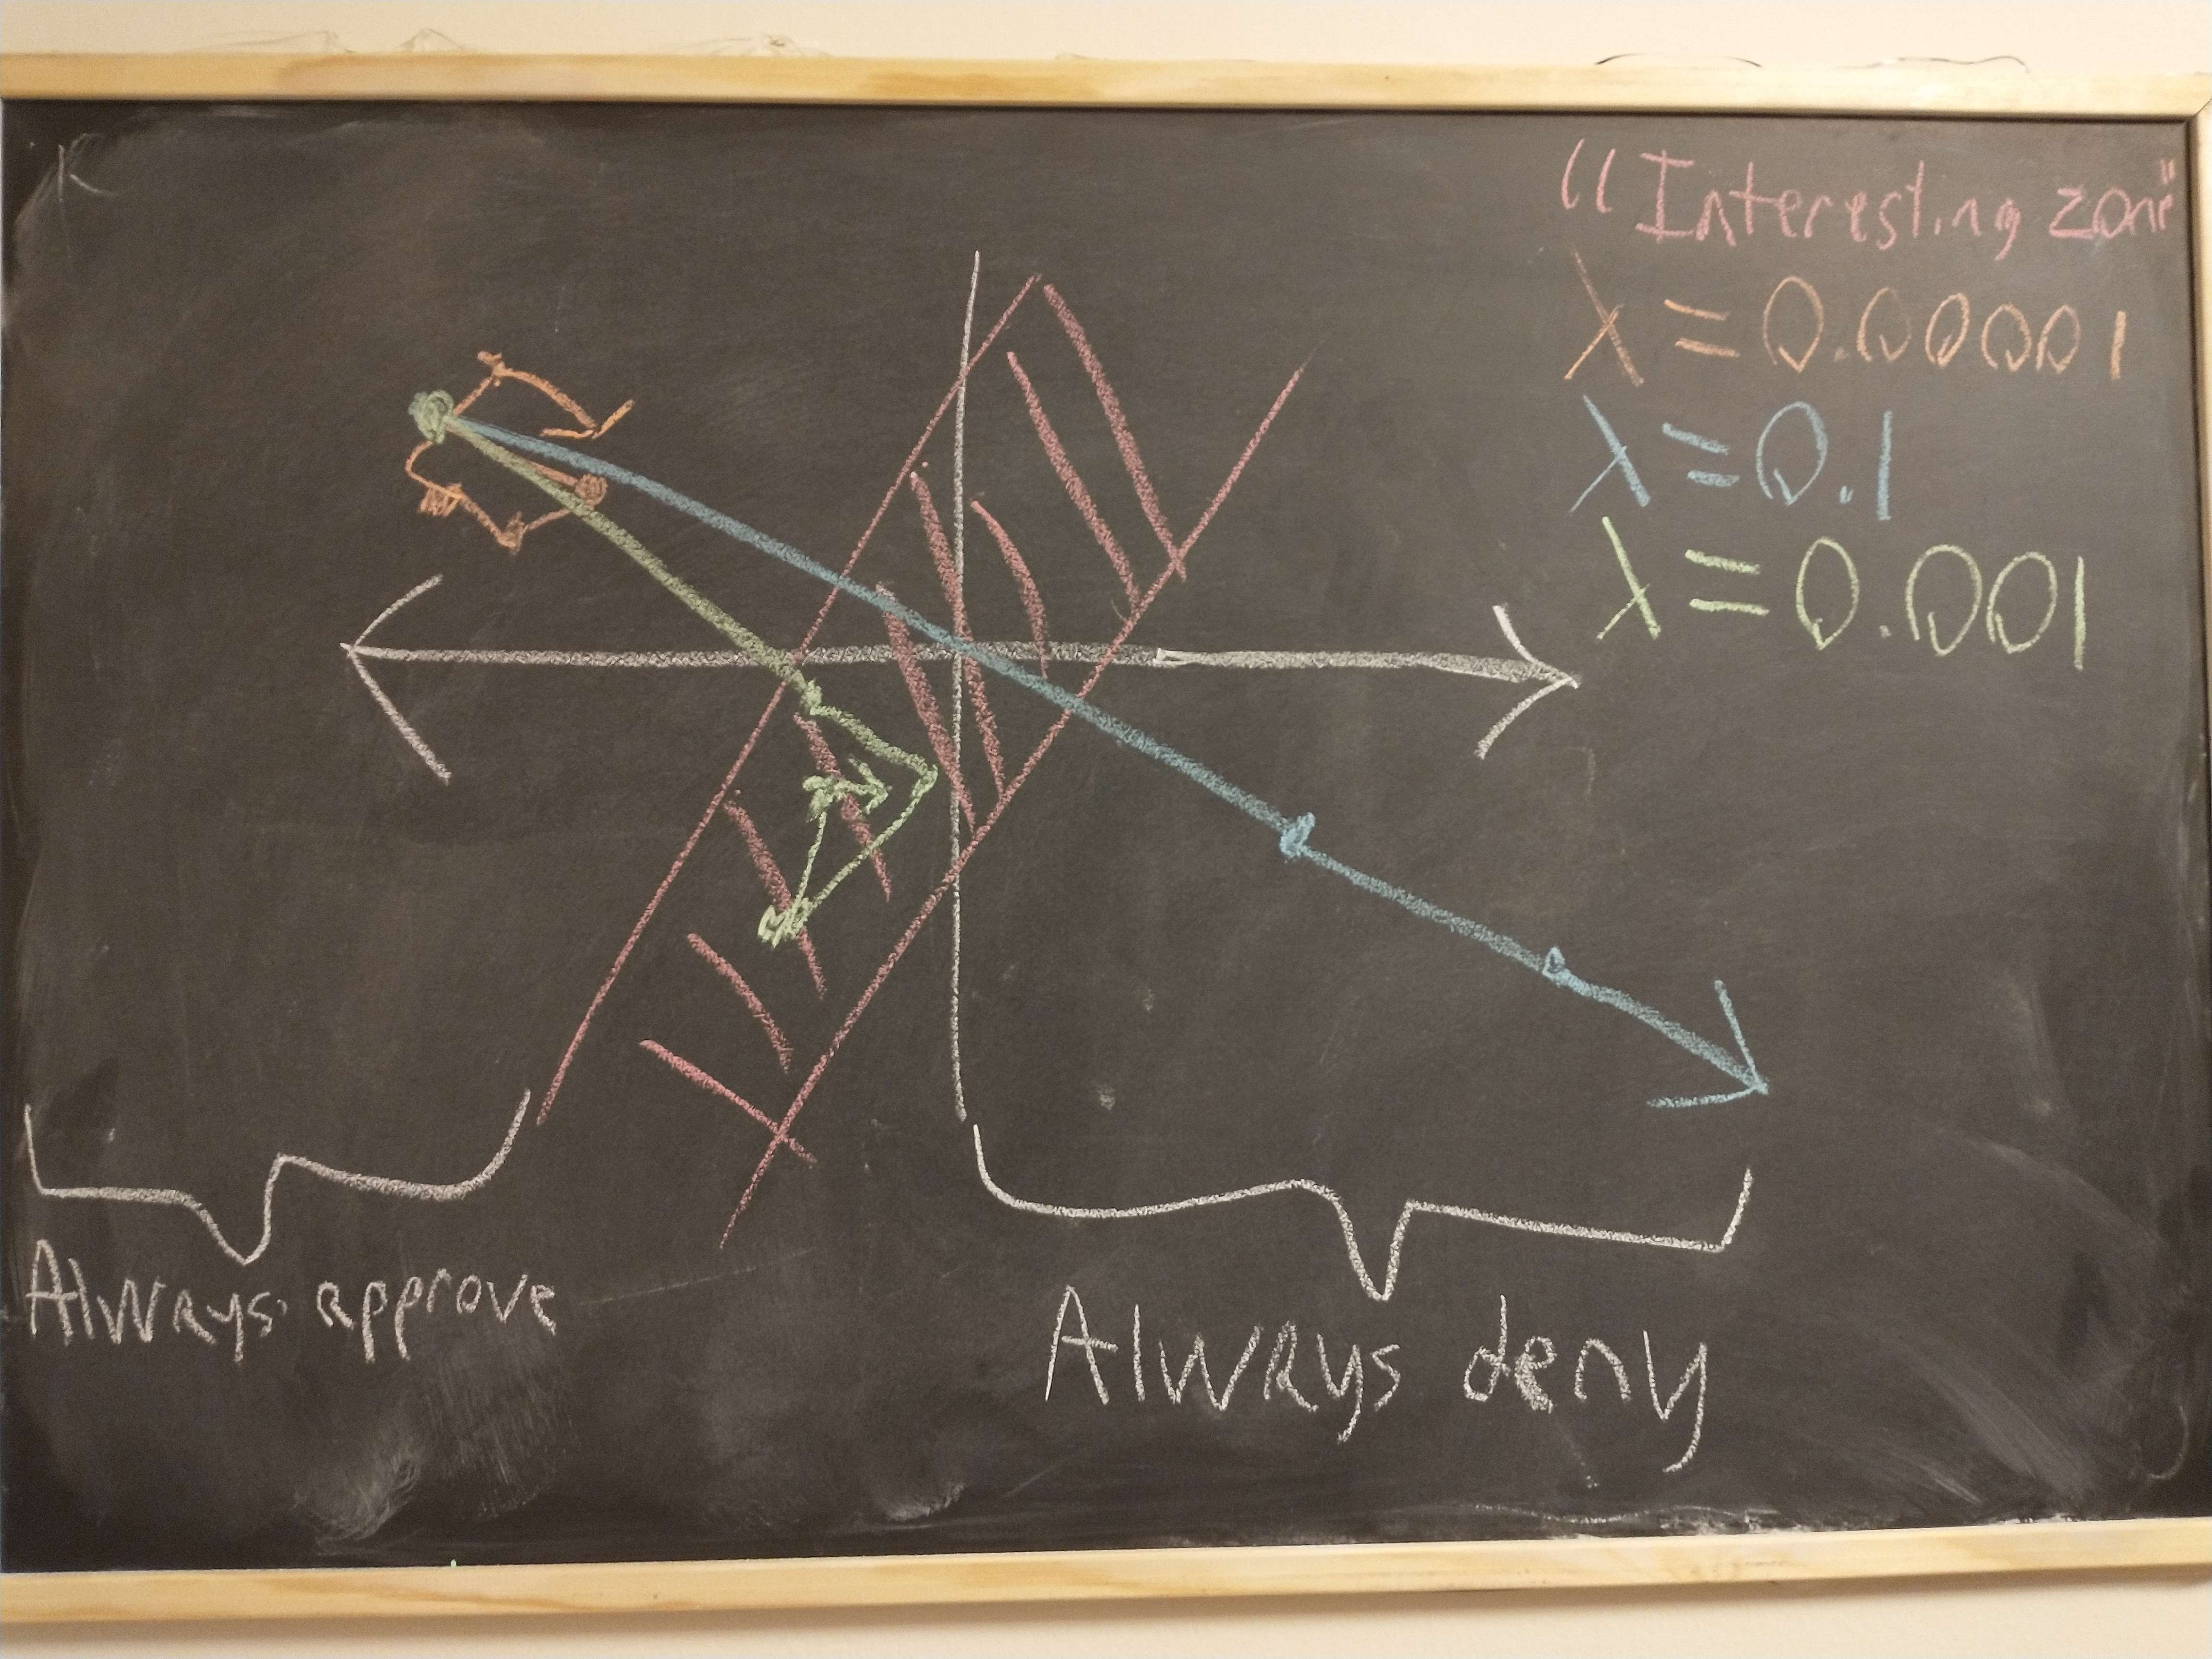 "Interesting zone"
λ = 0.00001
λ = 0.1
λ = 0.001
Always approve
Always deny